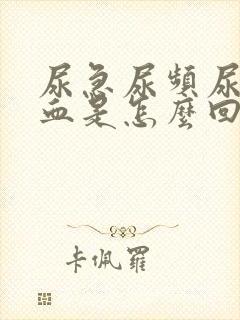 尿急尿頻尿
血是怎麼回
卡佩羅